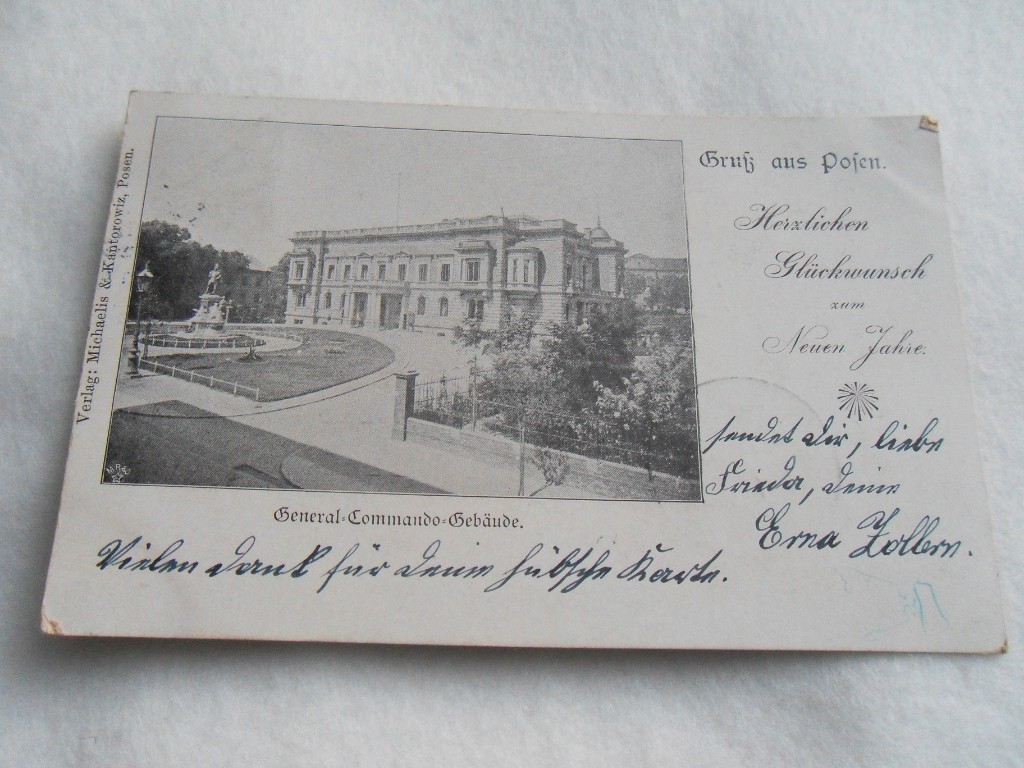 Verlag: Michaelis & Kantorowiz, Posen.
Gruß aus Posen.
Herzlichen
Glückwunsch
zum
Neuen Jahre.
sendet dir, liebe
Frieda, deine
Erna Zollern.
General-Commando-Gebäude.
Vielen Dank für deine hübsche Karte.